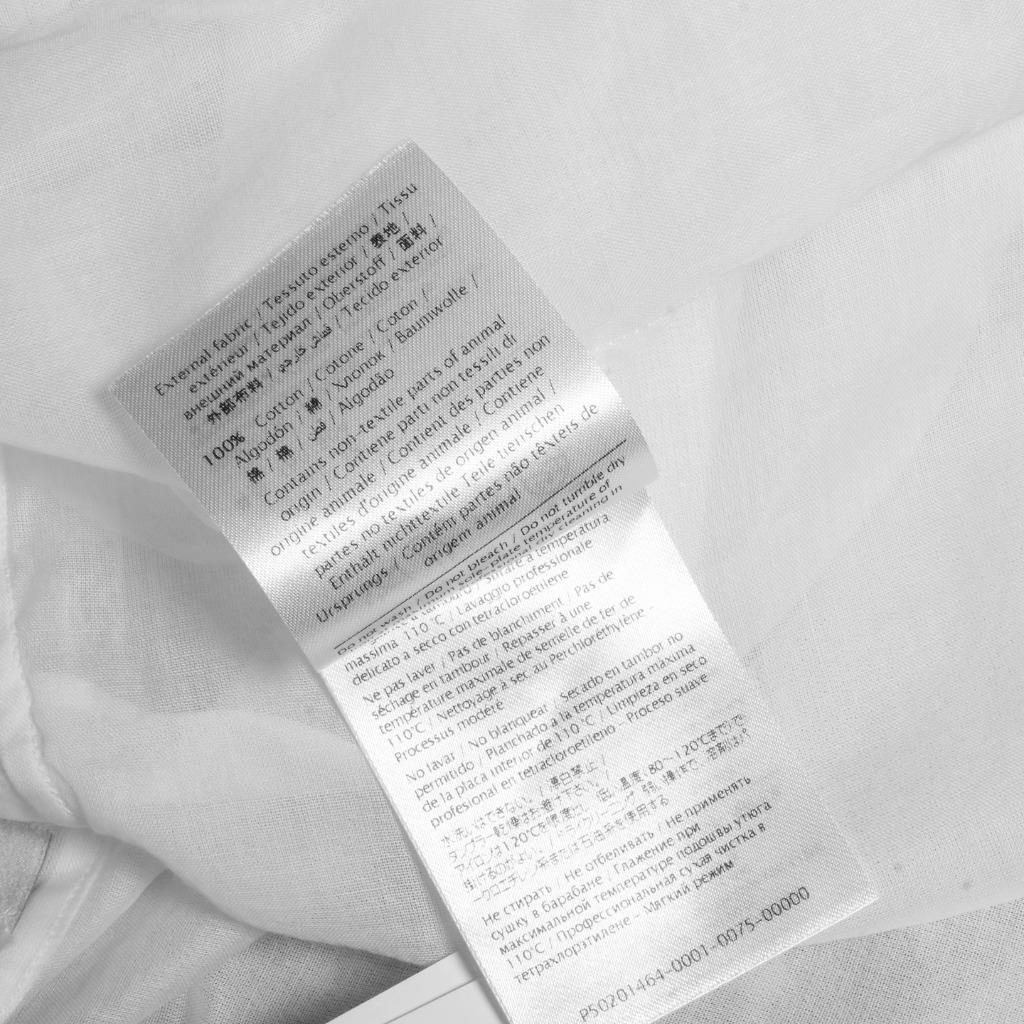 External fabric / Tessuto esterno / Tissu
extérieur / Tejido exterior / 表地 /
внешний материал / Oberstoff / 面料 /
外部布料 / قماش خارجي / Tecido exterior
100% Cotton / Cotone / Coton /
Algodón / 綿 / Хлопок / Baumwolle /
棉 / 棉 / قطن / Algodão
Contains non-textile parts of animal
origin / Contiene parti non tessili di
origine animale / Contient des parties non
textiles d'origine animale / Contiene
partes no textiles de origen animal /
Enthält nichttextile Teile tierischen
Ursprungs / Contém partes não têxteis de
origem animal
Do not wash / Do not bleach / Do not tumble dry
sole-plate temperature of
dry cleaning in
Stirare a temperatura
massima 110°C / Lavaggio professionale
delicato a secco con tetracloroetilene
Ne pas laver / Pas de blanchiment / Pas de
séchage en tambour / Repasser à une
température maximale de semelle de fer de
110°C / Nettoyage à sec au Perchloréthylène -
Processus modéré
No lavar / No blanquear - Secado en tambor no
permitido / Planchado a la temperatura máxima
de la placa interior de 110°C / Limpieza en seco
profesional en tetracloroetileno - Proceso suave
水洗いはできない。/ 漂白禁止 /
タンブラー乾燥はお避け下さい。/
アイロンは120℃を限度に、低い温度(80～120℃まで)で
Не стирать / Не отбеливать / Не применять
сушку в барабане / Глажение при
максимальной температуре подошвы утюга
110°C / Профессиональная сухая чистка в
тетрахлорэтилене - Мягкий режим
P50201464-0001-0075-00000